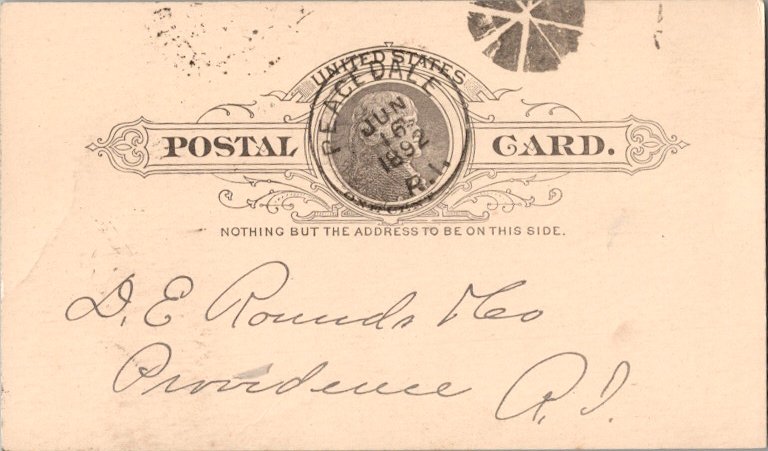 UNITED STATES
PEACEDALE
JUN
16
1892
R.I.
POSTAL CARD.
ONE CENT
NOTHING BUT THE ADDRESS TO BE ON THIS SIDE.
D. E Rounds & Co
Providence R. I.